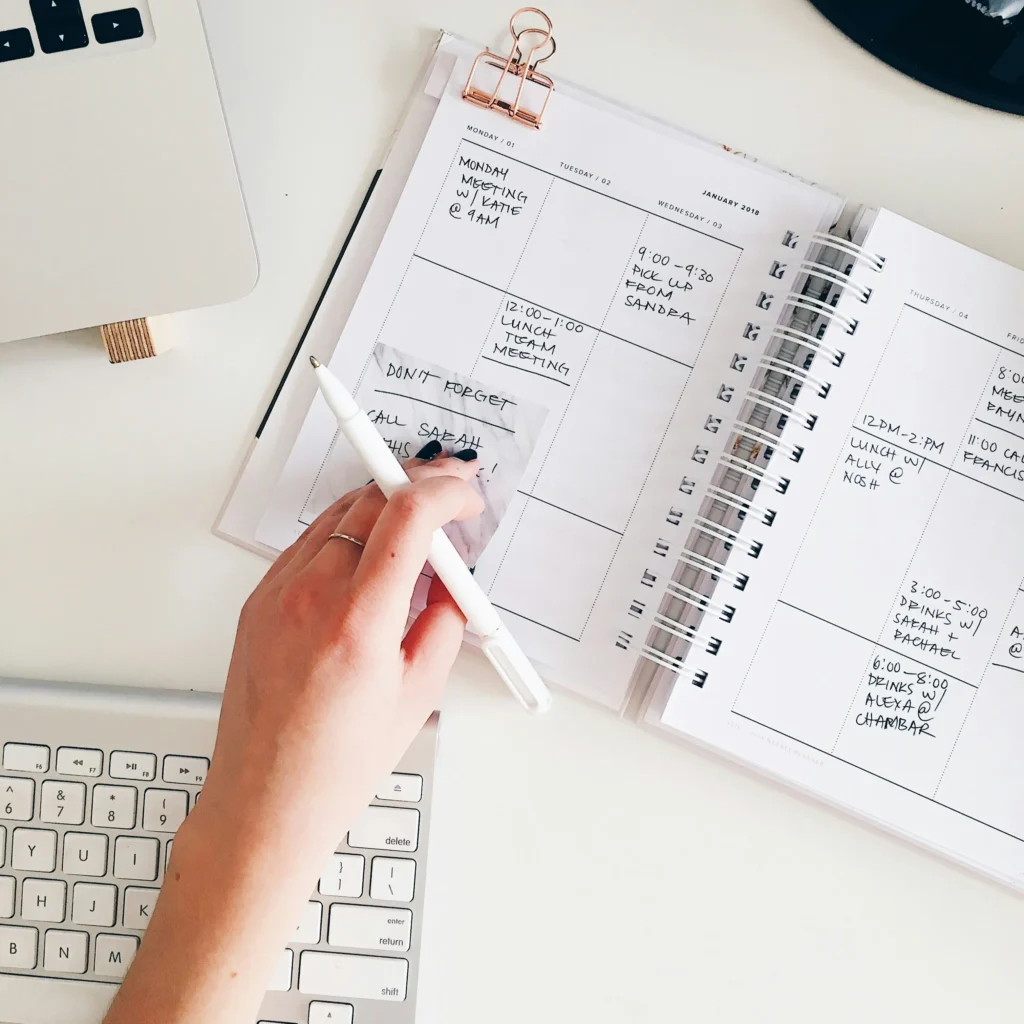 JANUARY 2018
MONDAY / 01
MONDAY
MEETING
W/ KATIE
@ 9AM
TUESDAY / 02
12:00-1:00
LUNCH
TEAM
MEETING
WEDNESDAY / 03
9:00-9:30
PICK UP
FROM
SANDRA
DON'T FORGET
CALL SARAH
!
THURSDAY / 04
12PM-2PM
LUNCH W/
ALLY @
NOSH
3:00-5:00
DRINKS W/
SARAH +
RACHAEL
6:00-8:00
DRINKS W/
ALEXA @
CHAMBAR
FRID
8:0
MEE
11:00 CAL
FRANCIS
A
@
F6
F7
F8
F9
^
6
&
7
*
8
(
9
delete
Y
U
I
}
]
|
\
H
J
K
enter
return
B
N
M
shift